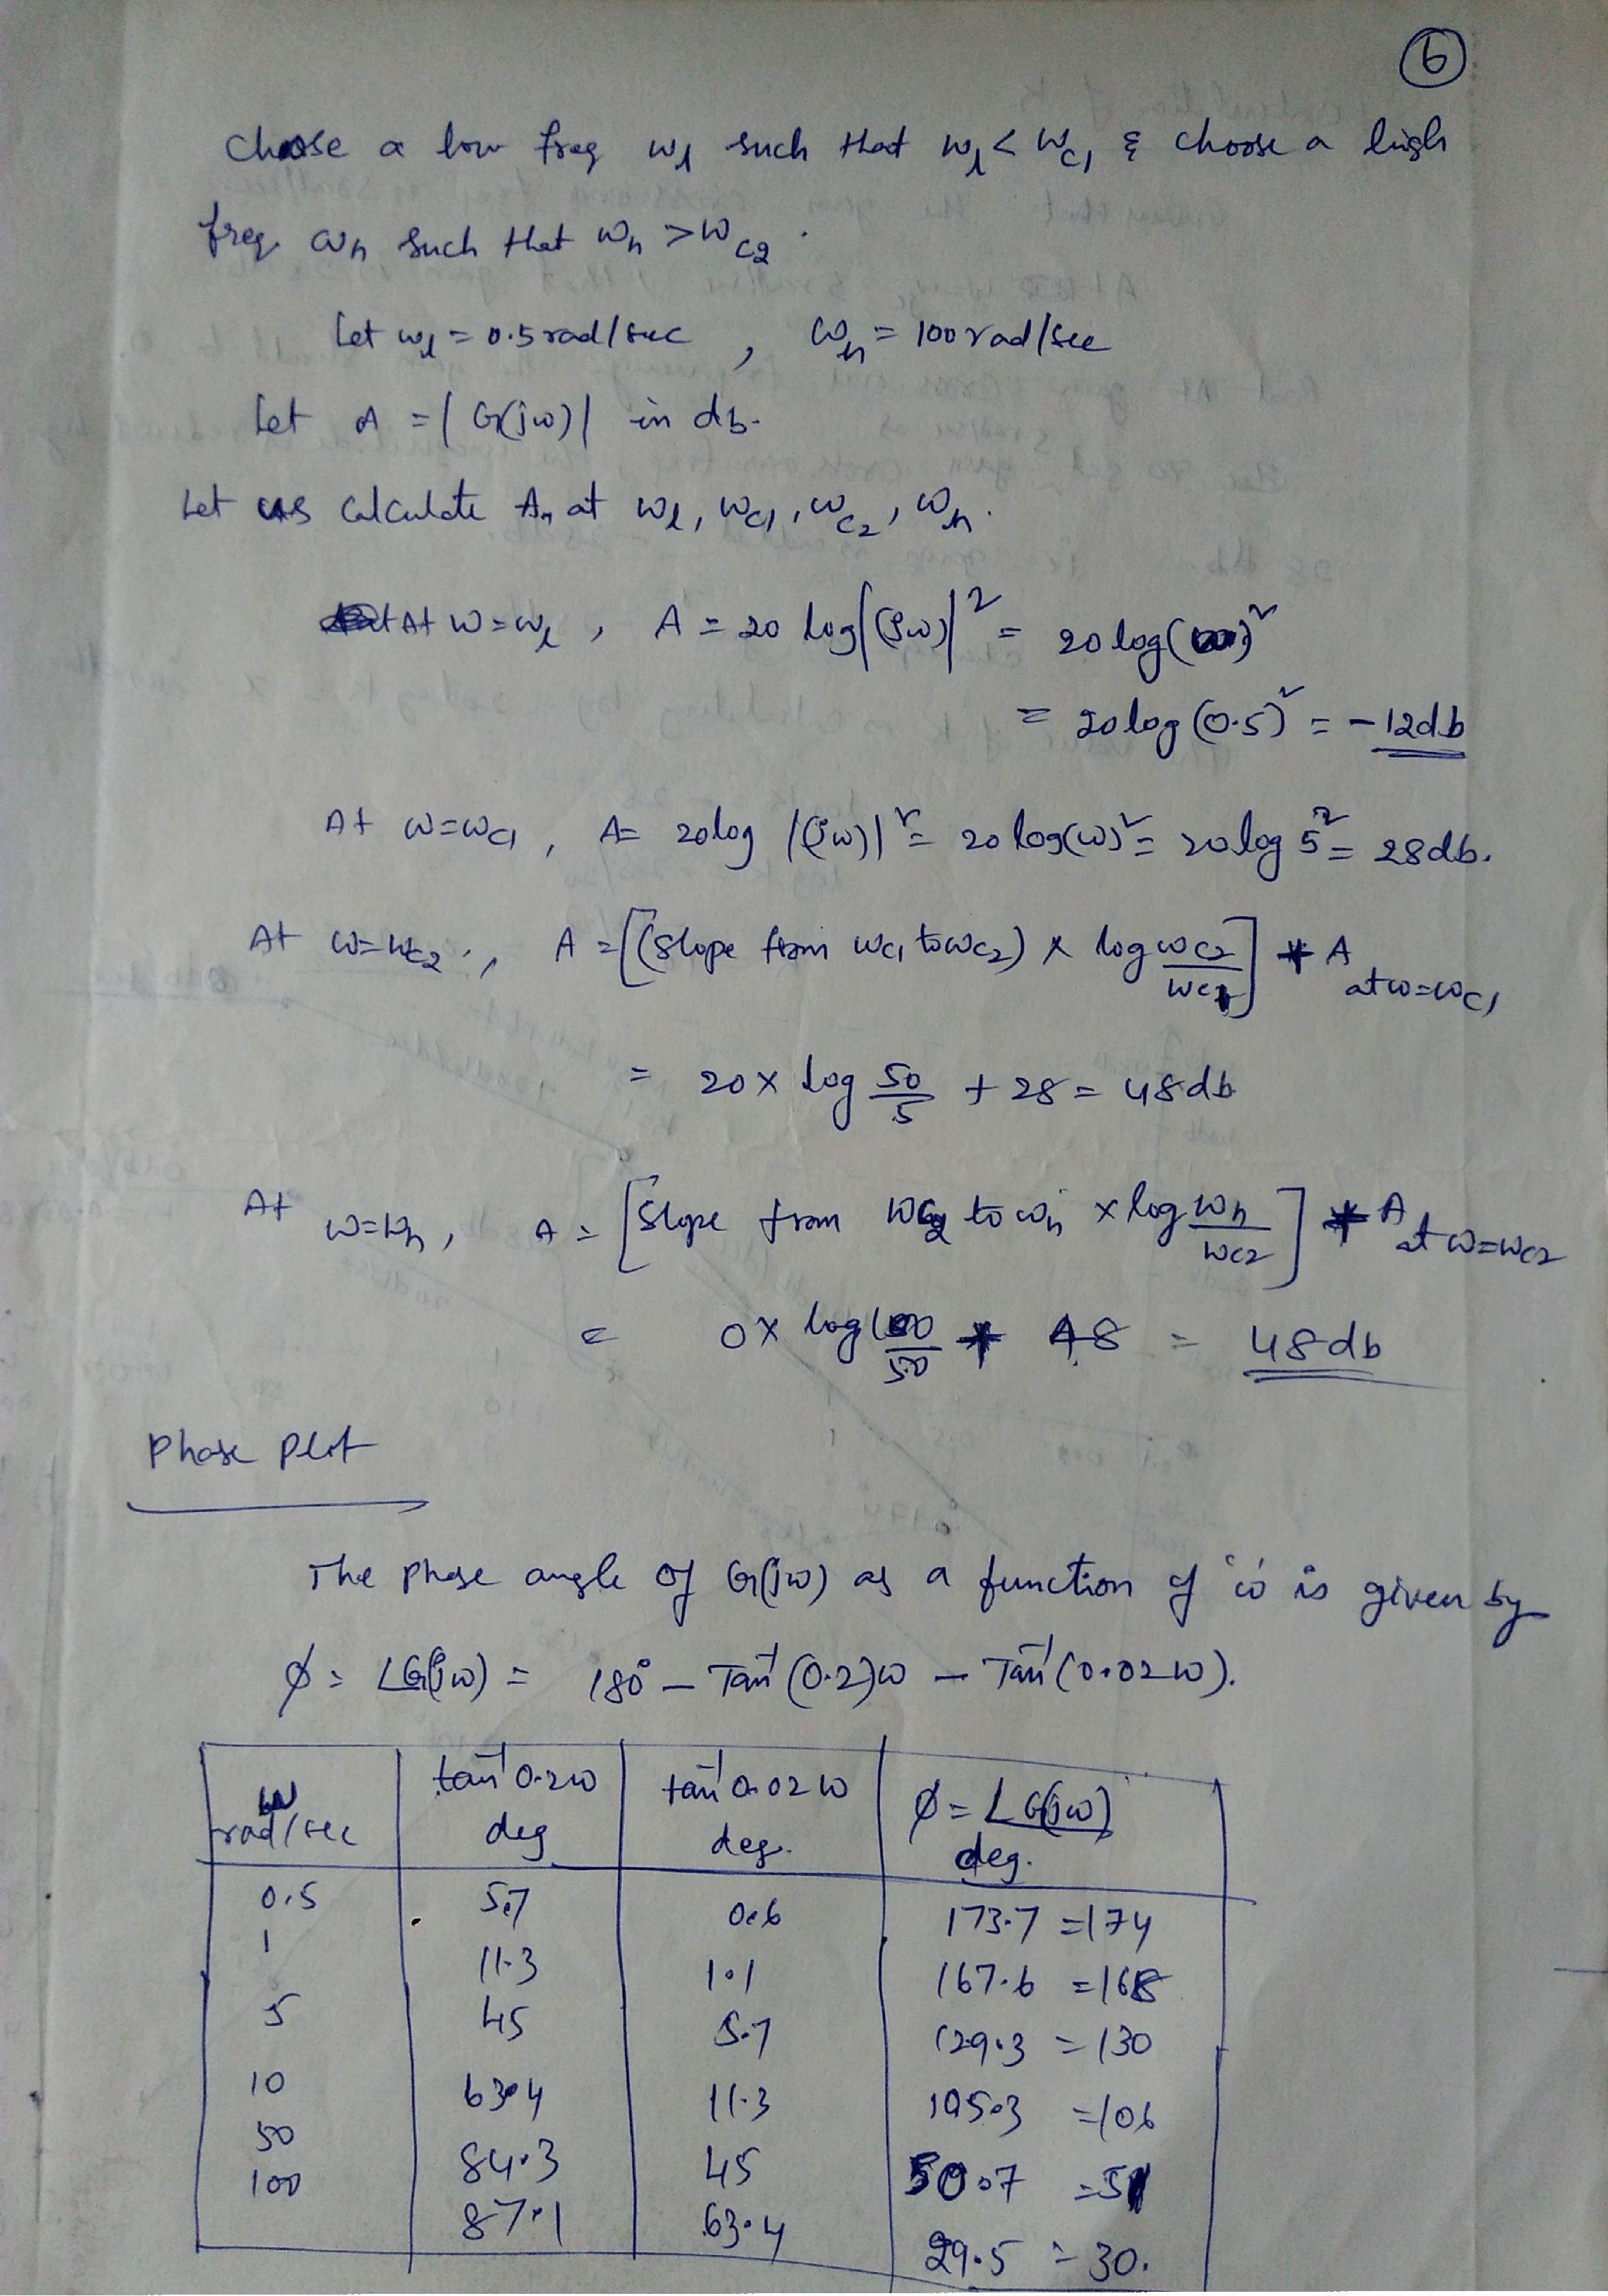 6
choose a low freq ωl such that ωl < ωc1 & choose a high
freq. ωh such that ωh > ωc2.
Let ωl = 0.5 rad/sec , ωh = 100 rad/sec
Let A = |G(jω)| in db.
Let us calculate A, at ωl, ωc1, ωc2, ωh.
At ω = ωl , A = 20 log|(jω)|² = 20 log(ω)²
= 20 log (0.5)² = -12db
At ω=ωc1 , A= 20log |(jω)|² = 20 log(ω)² = 20log 5² = 28db.
At ω=ωc2 , A = [(slope from ωc1 to ωc2) x log ωc2/ωc1] + A at ω=ωc1
= 20 x log 50/5 + 28 = 48db
At ω=ωh , A = [slope from ωc2 to ωh x log ωh/ωc2] + A at ω=ωc2
= 0 x log 100/50 + 48 = 48db
Phase Plot
The phase angle of G(jω) as a function of 'ω' is given by
ø = ∠G(jω) = 180° - Tan⁻¹ (0.2)ω - Tan⁻¹ (0.02ω).
ω rad/sec tan⁻¹ 0.2ω deg tan⁻¹ 0.02ω deg. ø = ∠G(jω) deg.
0.5 5.7 0.6 173.7 =174
1 11.3 1.1 167.6 =168
5 45 5.7 129.3 =130
10 63.4 11.3 105.3 =106
50 84.3 45 50.7 =51
100 87.1 63.4 29.5 =30.